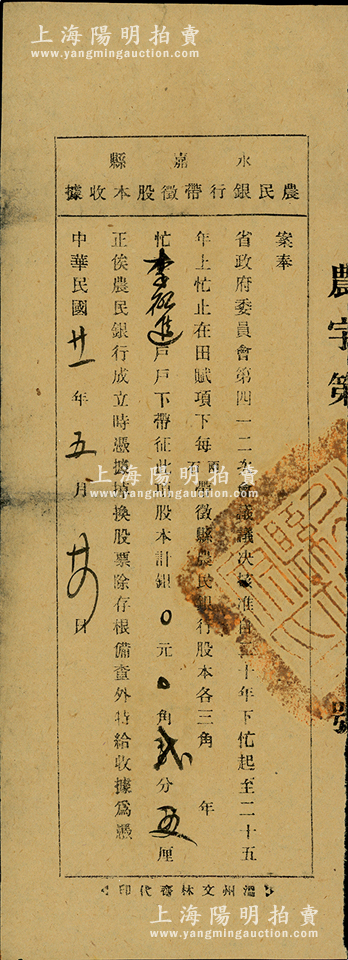 上海陽明拍賣
www.yangmingauction.com
永嘉縣
農民銀行帶徵股本收據
案奉
省政府委員會第四一二次會議議決核准自二十年下忙起至二十五
年上忙止在田賦項下每兩石帶徵縣農民銀行股本各三角 年
忙李 進戶戶下帶征此項股本計銀0元0角貳分五厘
正俟農民銀行成立時憑據掉換股票除存根備查外特給收據爲憑
中華民國廿一年五月 日
溫州文林齋代印
農字第
號
上海陽明拍賣
www.yangmingauction.com
上海陽明拍賣
www.yangmingauction.com